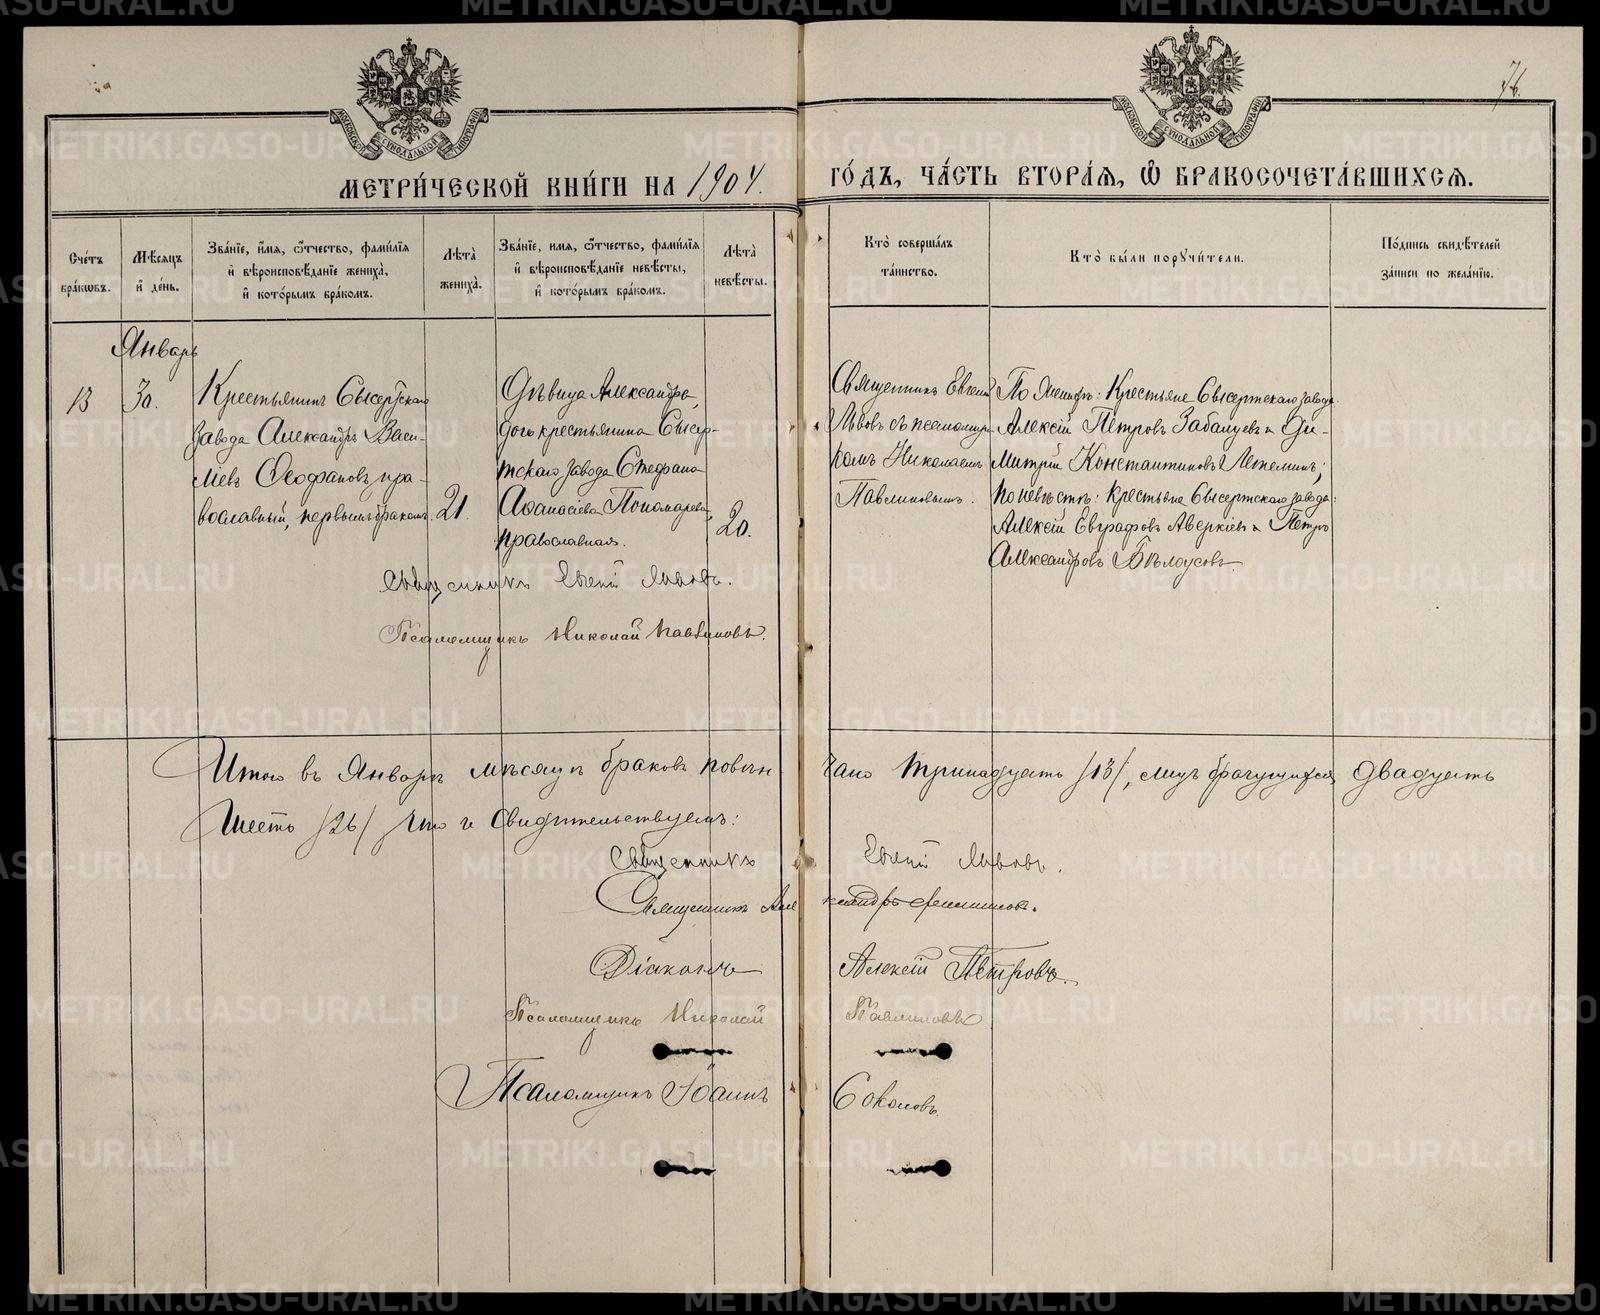 76.
МОСКОВСКОЙ СУНОДАЛЬНОЙ ТИПОГРАФІИ
МОСКОВСКОЙ СУНОДАЛЬНОЙ ТИПОГРАФІИ
МЕТРИ́ЧЕСКОЙ КНИ́ГИ НА 1904. ГО́ДЪ, ЧА́СТЬ ВТОРА́Я, Ѿ БРАКОСОЧЕТА́ВШИХСЯ.
Сче́тъ
бра́кѡвъ.
Мѣ́сяцъ
и҆ де́нь.
Зва́нїе, и҆́мя, ѻ҆́тчество, фами́лїя
и҆ вѣроисповѣ́данїе жениха̀,
и҆ кото́рымъ бра́комъ.
Лѣ́та
жениха̀.
Зва́нїе, и҆́мя, ѻ҆́тчество, фами́лїя
и҆ вѣроисповѣ́данїе невѣ́сты,
и҆ кото́рымъ бра́комъ.
Лѣ́та
невѣ́сты.
Кто̀ соверша́лъ
та́инство.
Кто̀ бы́ли поручи́тели.
По́дпись свидѣ́телей
за́писи по жела́нїю.
Январь
13
30.
Крестьянинъ Сысертскаго
завода Александръ Васи-
льевъ Ѳеофановъ, пра-
вославный, первымъ бракомъ.
21.
Дѣвица Александра,
дочь крестьянина Сысер-
тскаго завода Стефана
Аѳанасіева Пономарева,
православная.
20.
Священникъ Евгеній
Львовъ съ псаломщи-
комъ Николаемъ
Павлиновымъ.
По женихѣ: Крестьяне Сысертскаго завода
Алексій Петровъ Забалуевъ и Ди-
митрій Константиновъ Летеминъ;
по невѣстѣ: крестьяне Сысертскаго завода:
Алексій Евграфовъ Аверкіевъ и Петръ
Александровъ Бѣлоусовъ.
Священникъ Евгеній Львовъ.
Псаломщикъ Николай Павлиновъ.
Итого въ Январѣ мѣсяцѣ браковъ повѣн-чано тринадцать /13/, лицъ брачущихся двадцать
шесть /26/ что и свидѣтельствуемъ:
Священникъ Евгеній Львовъ.
Священникъ Александръ
Діаконъ Алексій Петровъ.
Псаломщикъ Николай Павлиновъ
Псаломщикъ Іоаннъ Соколовъ.
METRIKI.GASO-URAL.RU